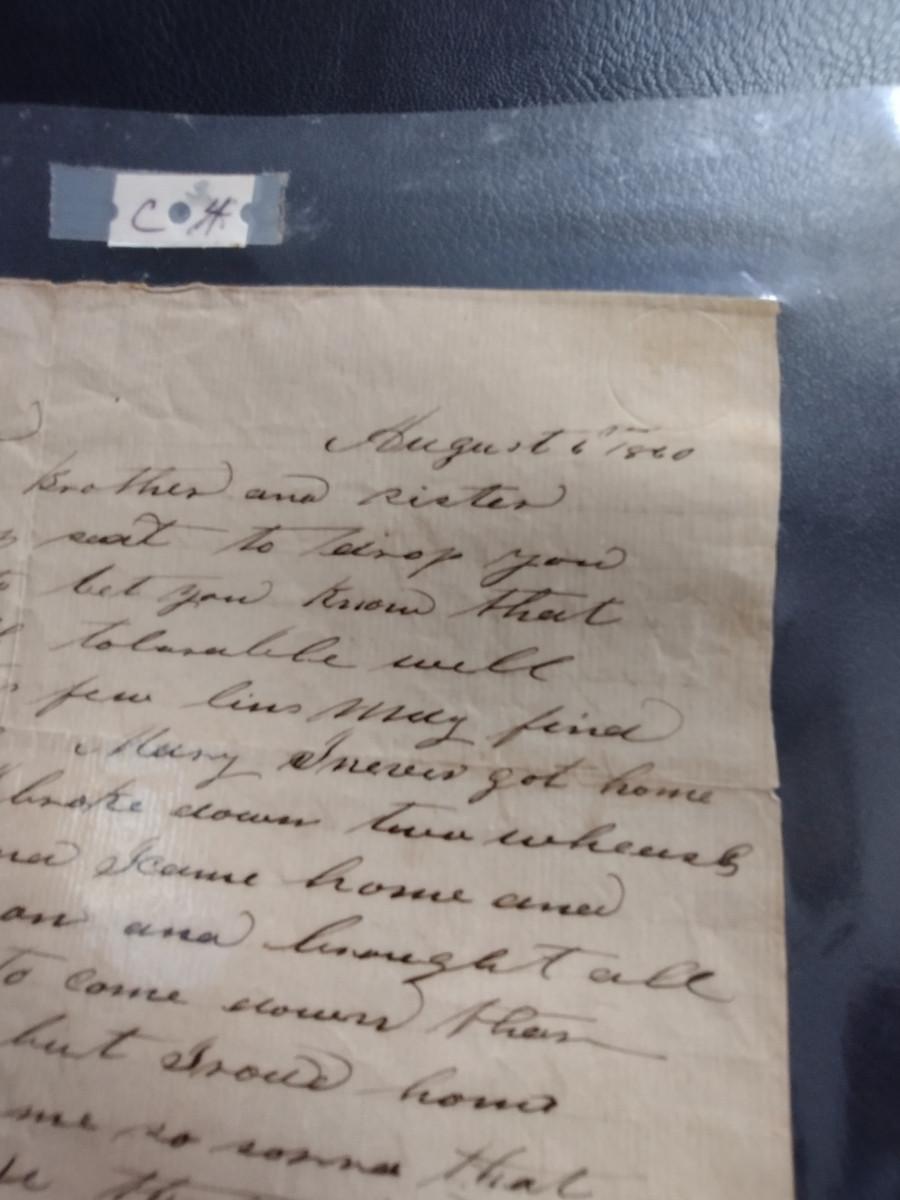 C. H.
August 6th 1860
Brother and sister
seat to drop you
to let you know that
tolarable well
few lins may find
Mary I never got home
broke down two wheeals
I came home and
on and brought all
to come down than
but I roud home
me so sorrie that